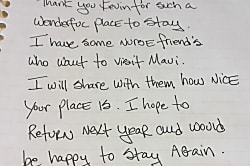 Thank you Kevin for such a
wonderful place to stay.
I have some nurse friend's
who want to visit Maui.
I will share with them how nice
your place is. I hope to
return next year and would
be happy to stay again.